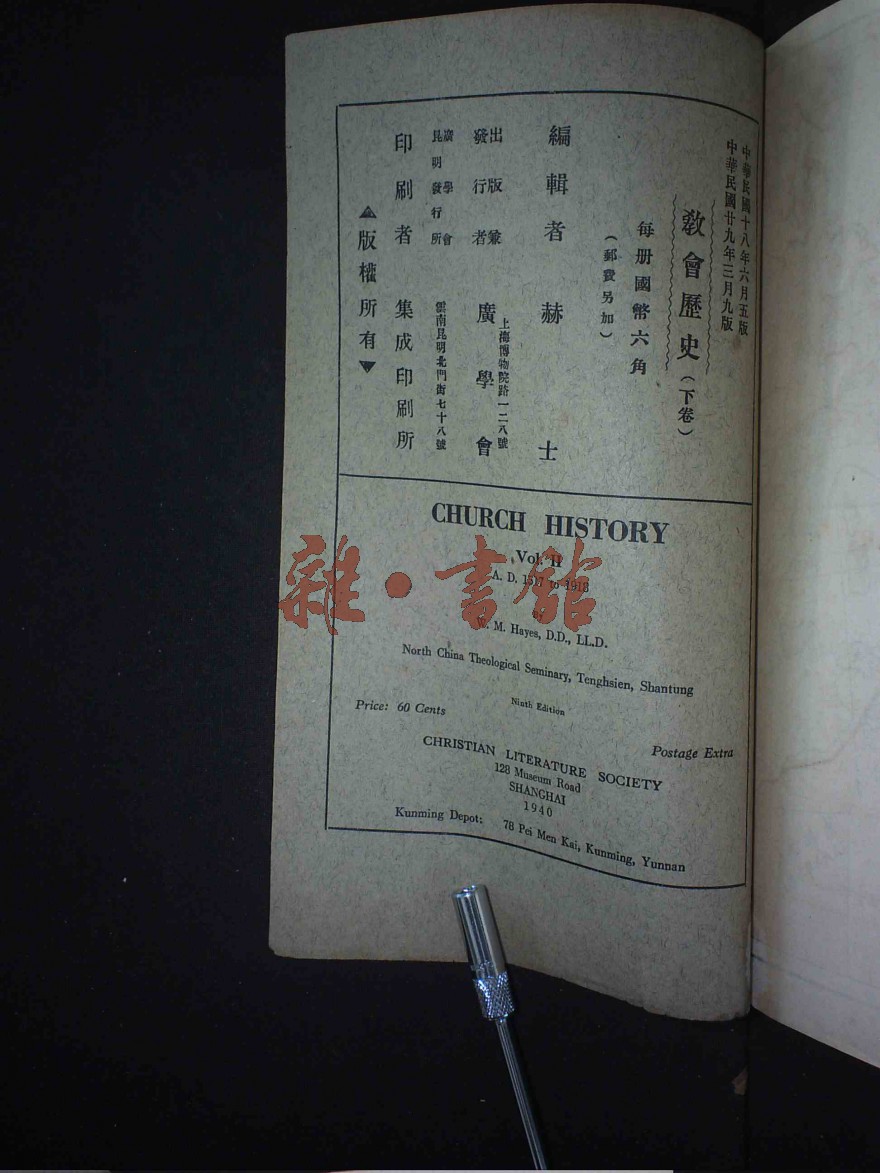 中華民國十八年六月五版
中華民國廿九年三月九版
教會歷史(下卷)
每册國幣六角
(郵費另加)
編輯者 赫士
出版兼發行者 廣學會
上海博物院路一二八號
廣學會昆明發行所 雲南昆明北門街七十八號
印刷者 集成印刷所
▲版權所有▼
CHURCH HISTORY
Vol. II
A. D. 1517 to 1918
By
W. M. Hayes, D.D., LL.D.
North China Theological Seminary, Tenghsien, Shantung
Ninth Edition
Price: 60 Cents
Postage Extra
CHRISTIAN LITERATURE SOCIETY
128 Museum Road
SHANGHAI
1940
Kunming Depot: 78 Pei Men Kai, Kunming, Yunnan
雜·書館